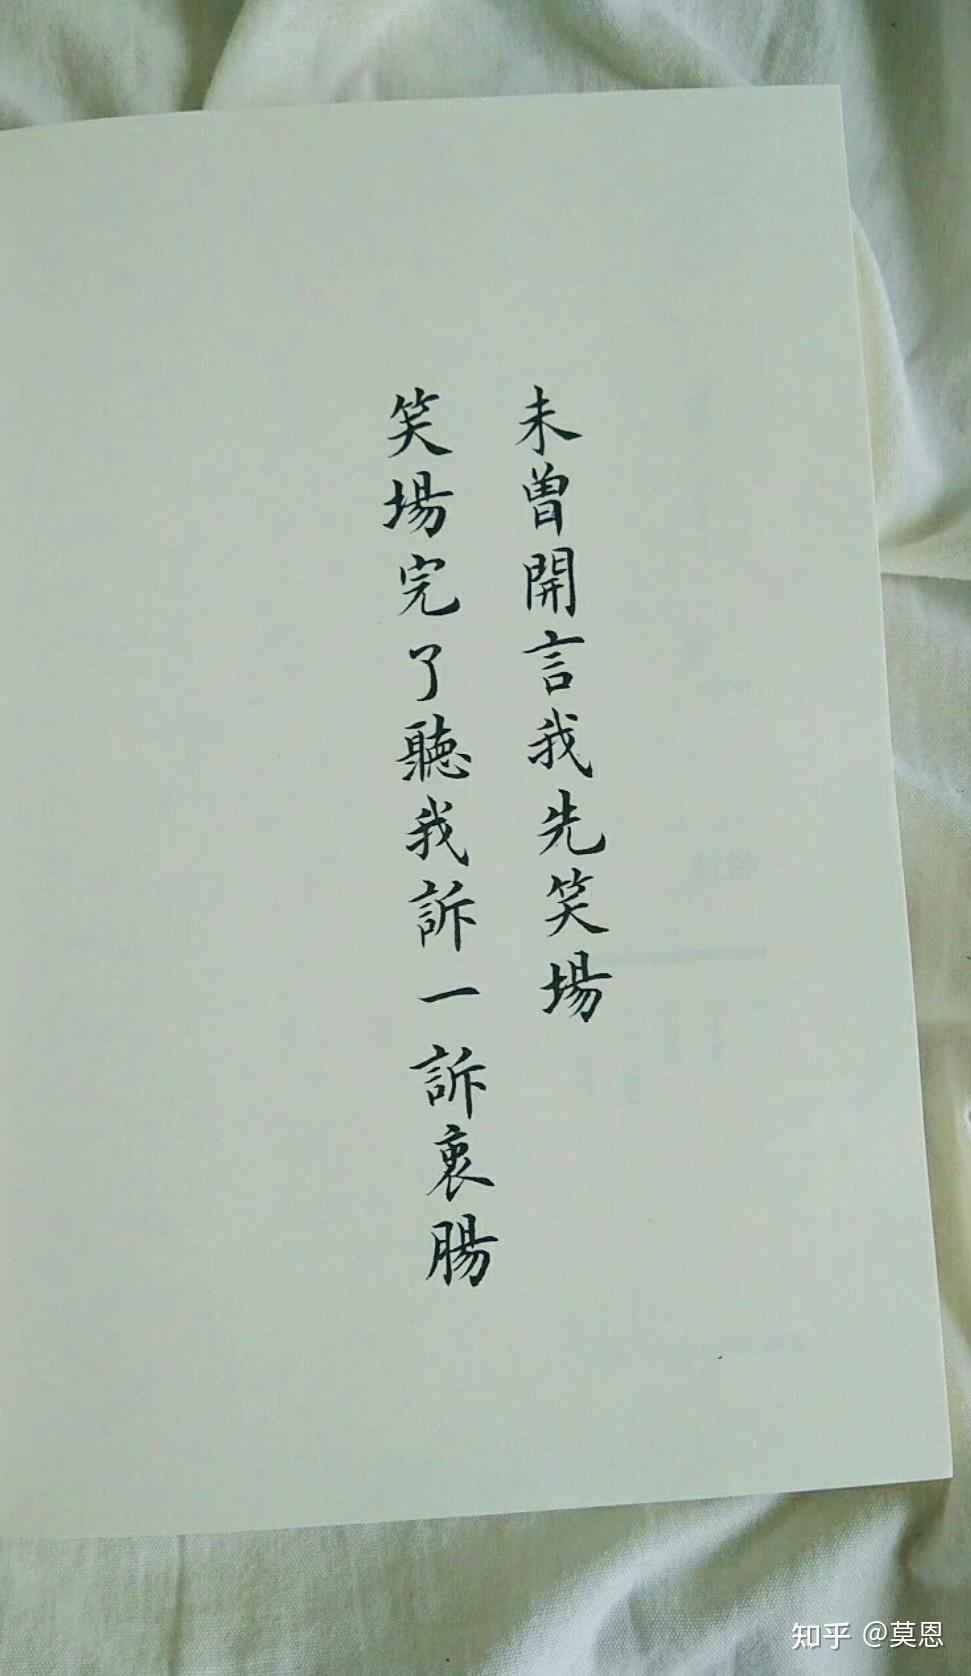 未曾開言我先笑場
笑場完了聽我訴一訴衷腸
知乎 @莫恩